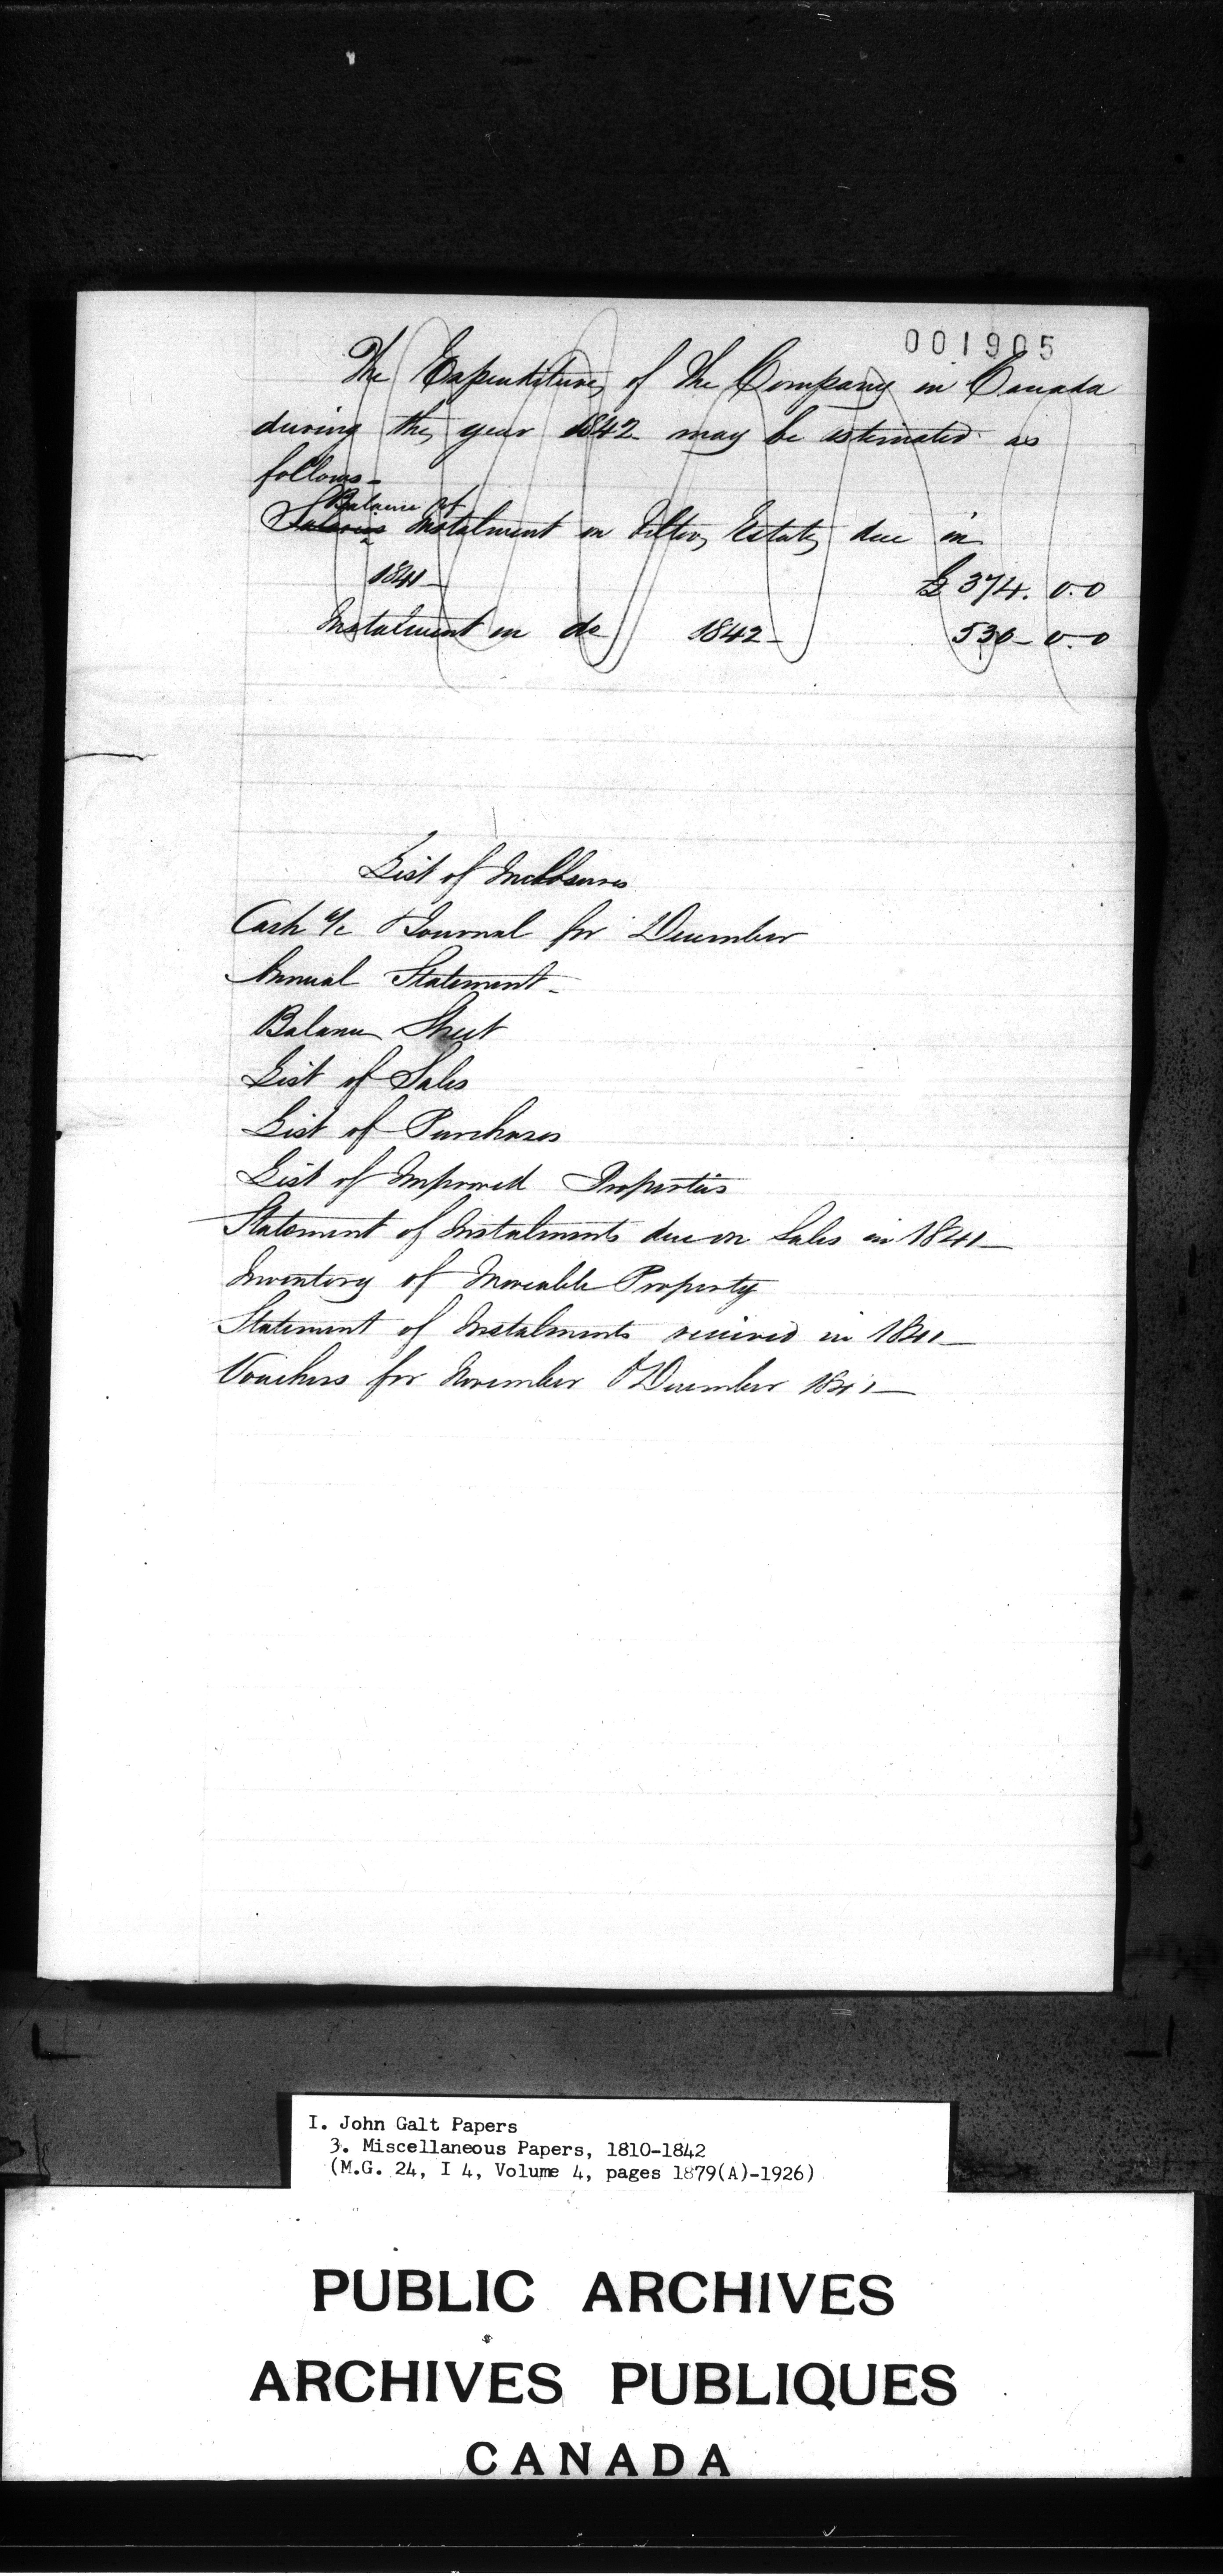 001905
The Expenditure, of the Company in Canada
during the, year 1842 may be estimated as
follows-
Balance of
Salaries Instalment on Felton, Estate, due in
1841- £ 374. 0.0
Instalment on do 1842- 530- 0.0
List of Inclosures
Cash a/c & Journal for December
Annual Statement-
Balance Sheet
List of Sales
List of Purchases
List of Improved Properties
Statement of Instalments due on Sales in 1841-
Inventory of Moveable Property
Statement of Instalments received in 1841-
Vouchers for November & December 1841-
I. John Galt Papers
3. Miscellaneous Papers, 1810-1842
(M.G. 24, I 4, Volume 4, pages 1879(A)-1926)
PUBLIC ARCHIVES
ARCHIVES PUBLIQUES
CANADA